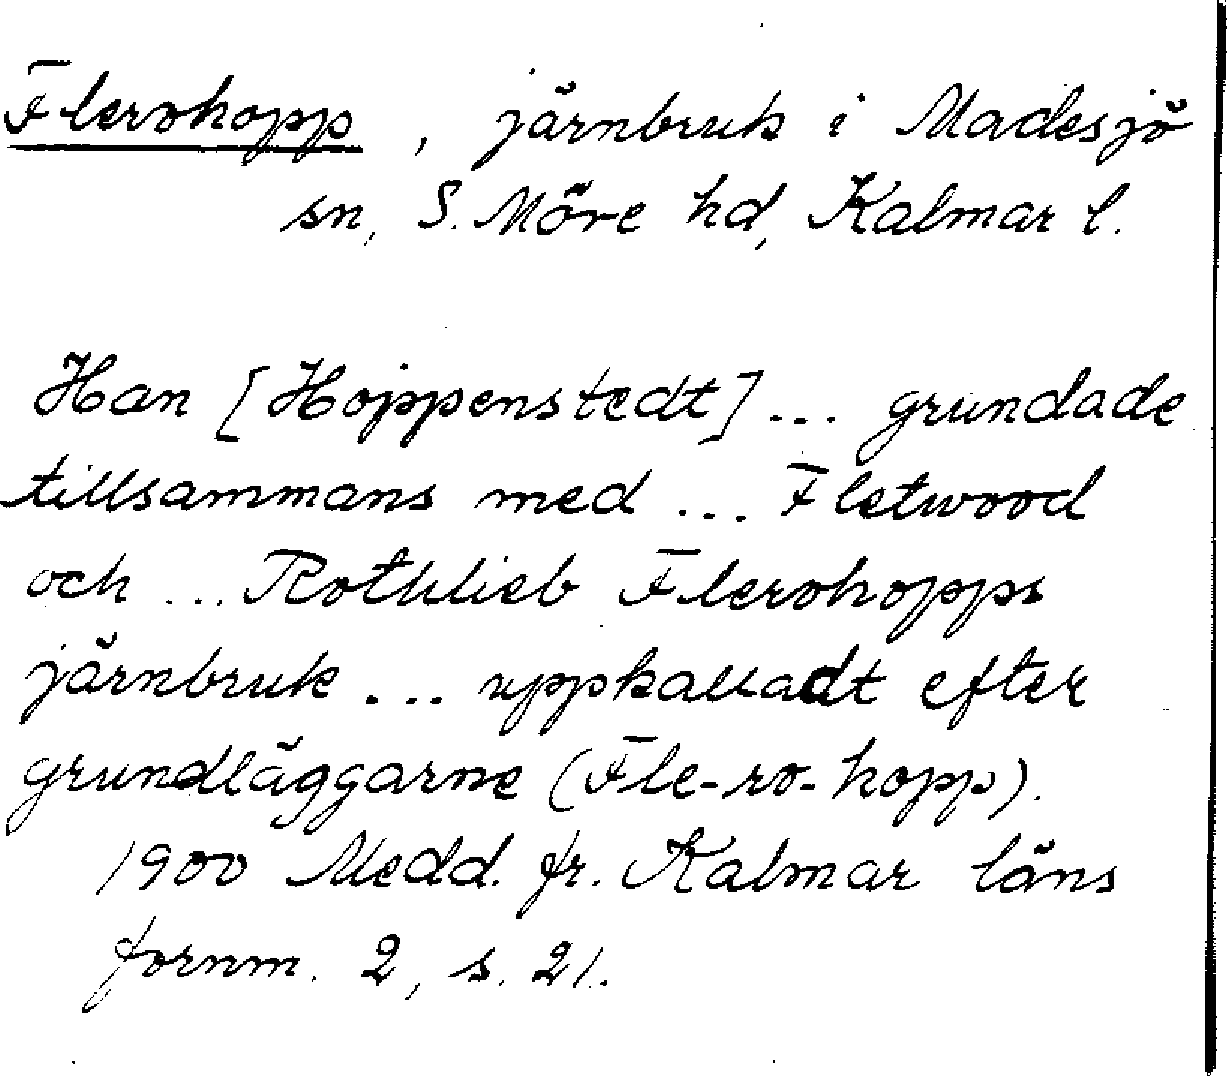 Flerohopp, järnbruk i Madesjö
sn, S. Möre hd, Kalmar l.
Han [Hoppenstedt]... grundade
tillsammans med ... Fletwood
och ... Rothlieb Flerohopps
järnbruk ... uppkalladt efter
grundläggarne (Fle-ro-hopp).
1900 Medd. fr. Kalmar läns
fornm. 2, s. 21.